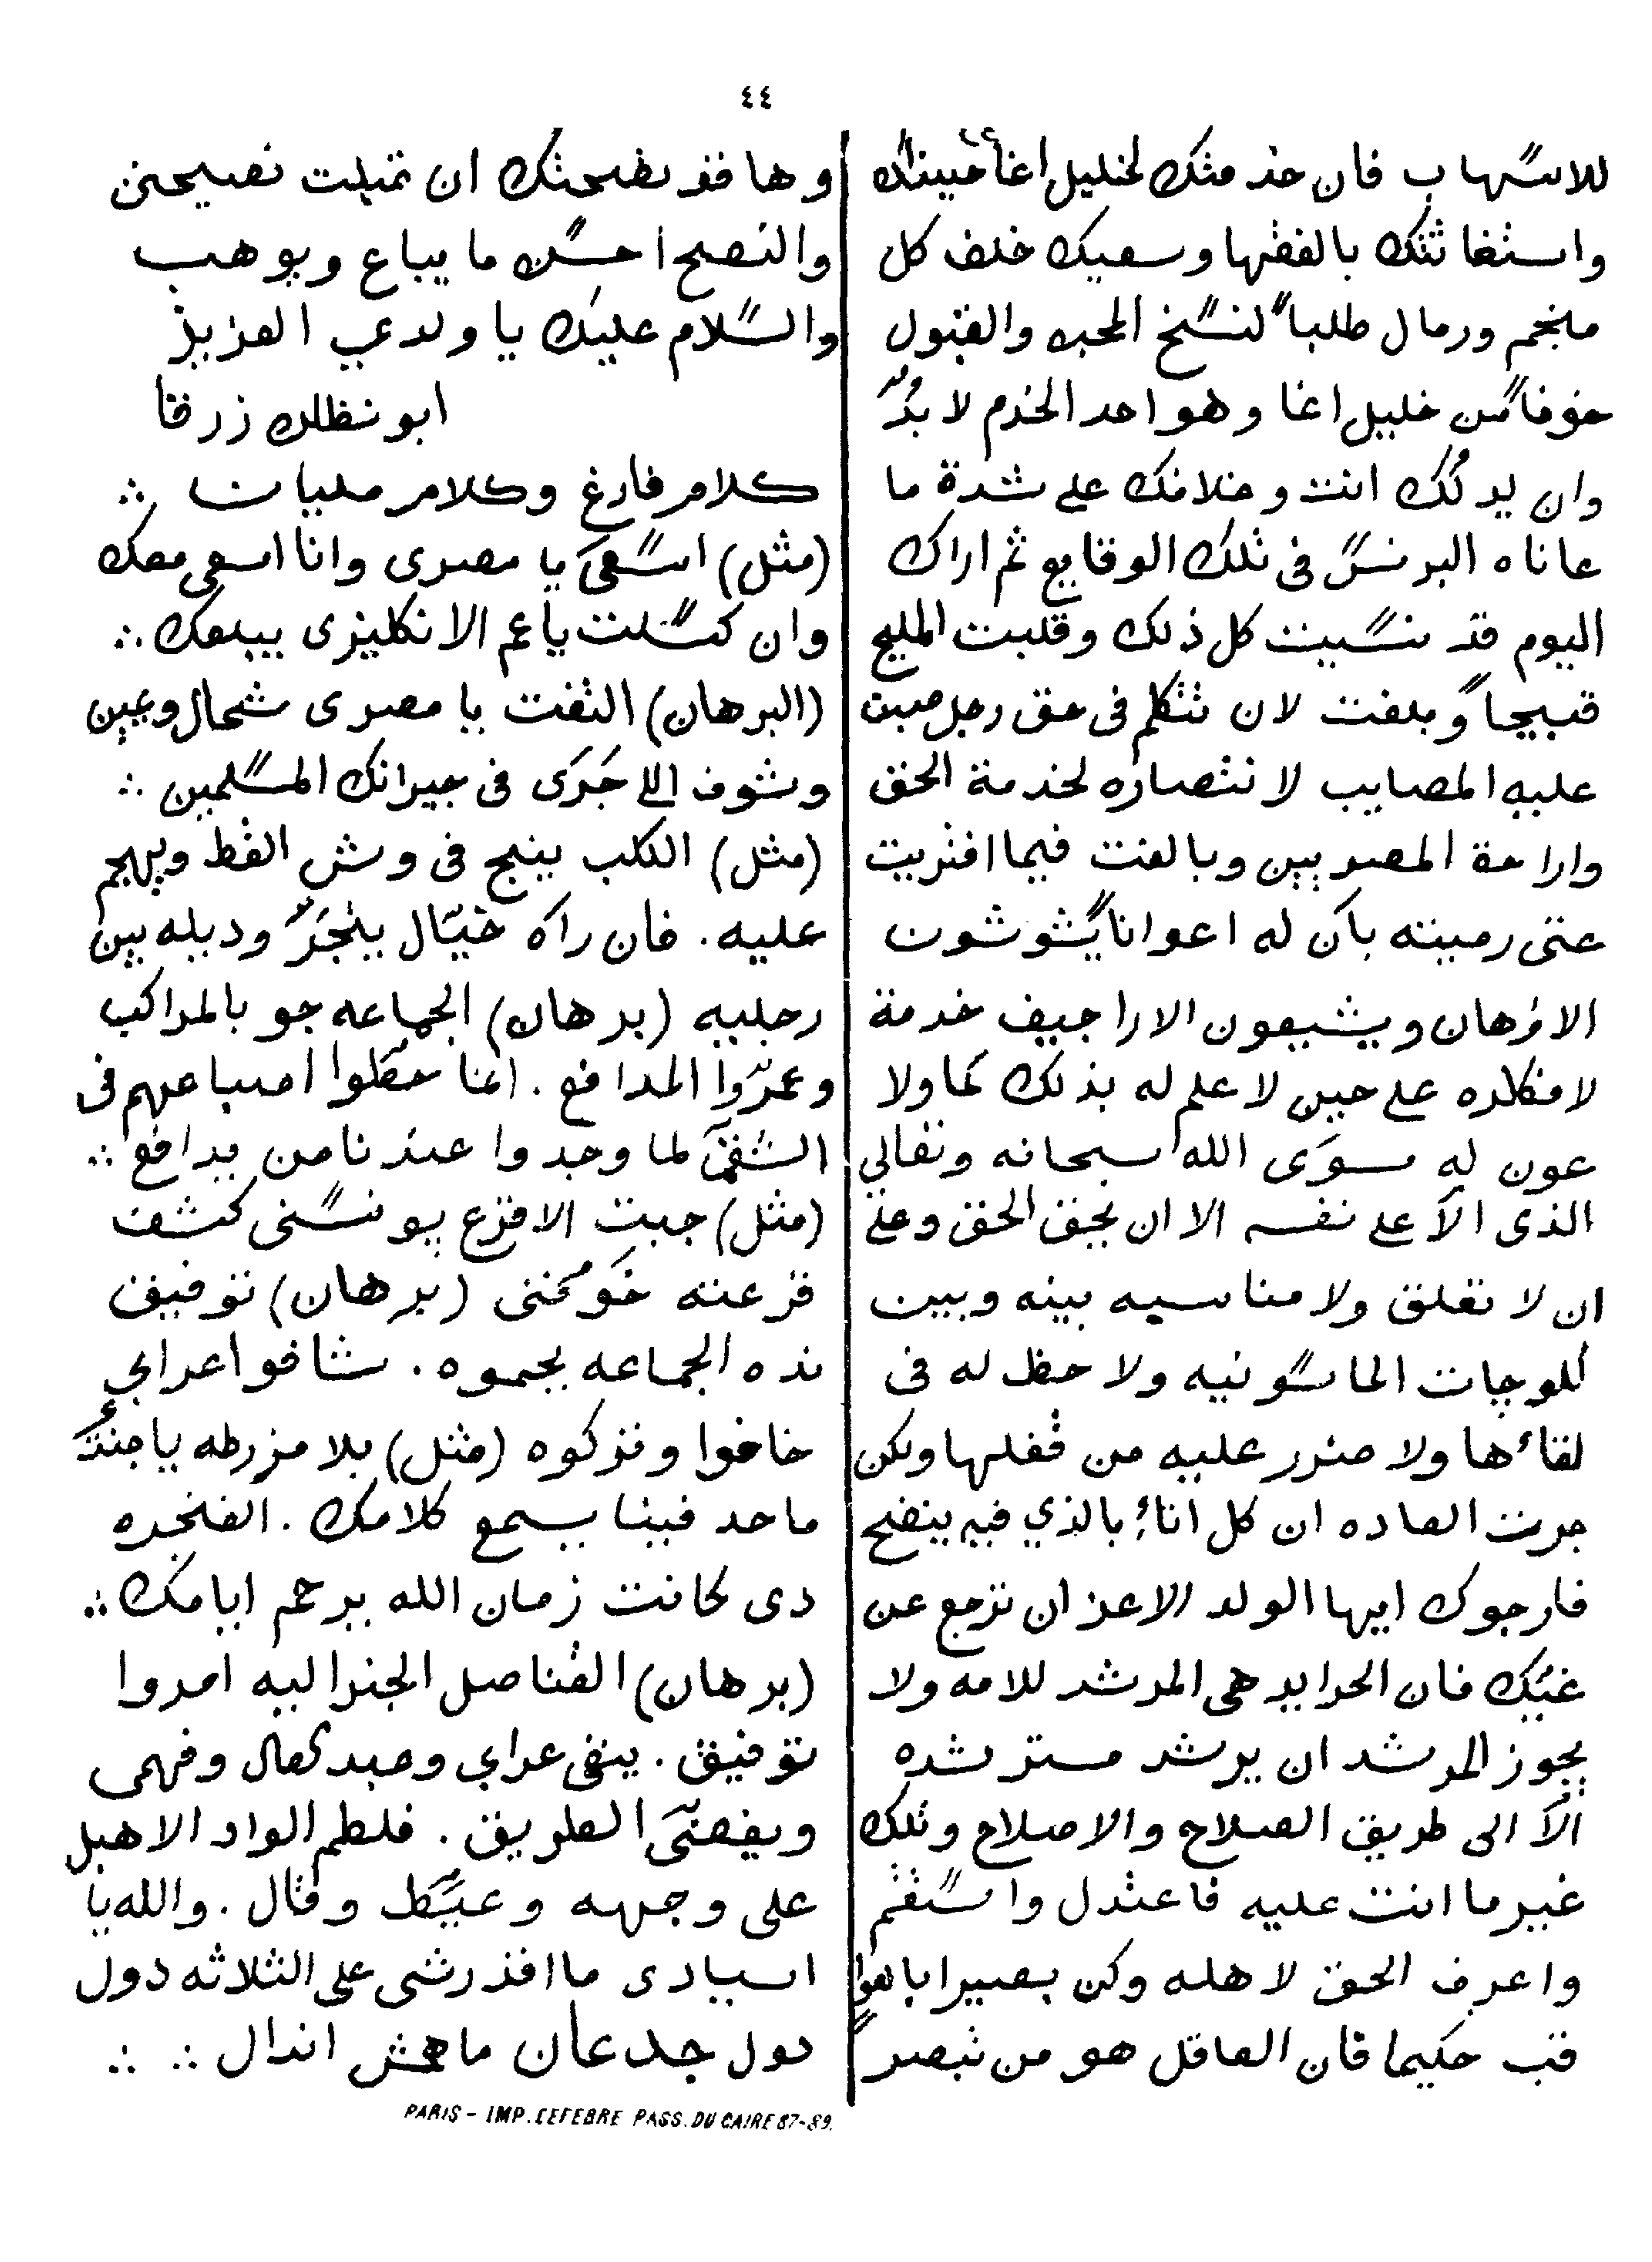 ٤٤
للاسهاب فان خدمتك لخليل اغا
واستغاثتك بالفقها وسعيك خلف كل
منجم ورمال طلباً لنسخ المحبه والقبول
خوفاً من خليل اغا وهو احد الخدم لا بدّ
وان يدلك انت وخلافك على شدة ما
عاناه البرنس فى تلك الوقايع ثم اراك
اليوم قد نسيت كل ذلك وقلبت المليح
قبيحاً وبلغت لان تتكلم فى حق رجل صبت
عليه المصايب لانتصاره لخدمة الحق
واراحة المصريين وبالغت فيما افتريت
حتى رميته بأن له اعواناً يشوشون
الاذهان ويشيعون الاراجيف خدمة
لافكاره على حين لا علم له بذلك كما ولا
عون له سوَى الله سبحانه وتعالي
الذى الآ على نفسه الا ان يحق الحق وعلى
ان لا تعلق ولا مناسبه بينه وبين
اللوجات الماسونيه ولا حظ له فى
لقاءها ولا ضرر عليه من قفلها ولكن
جرت العاده ان كل اناءٍ بالذي فيه ينضح
فارجوك ايها الولد الاعز ان ترجع عن
غيّك فان الجرايد هى المرشد للامه ولا
يجوز للمرشد ان يرشد مسترشده
الآ الى طريق الصلاح والاصلاح وتلك
غير ما انت عليه فاعتدل واستقم
واعرف الحق لاهله وكن بصيرا بالعوا
قب حكيما فان العاقل هو من تبصر
وها قد نصحتك ان قبلت نصيحتى
والنصح احسن ما يباع ويوهب
والسّلام عليك يا ولدي العزيز
ابو نظاره زرقا
كلام فارغ وكلام مليان ∴
(مثل) اسعىَ يا مصرى وانا اسعى معك
وان كسلت ياعم الانكليزى يبلعك ∴
(البرهان) التفت يا مصرى شمال ويمين
وشوف اللى جَرَى فى جيرانك المسلمين ∴
(مثل) الكلب ينبح فى وش القط ويهجم
عليه. فان راه خيّال ينجَرّ وديله بين
رجليه (برهان) الجماعه جو بالمراكب
وعمّروا المدافع. انما حطوا اصباعهم فى
الشق لما وجدوا عندنا من يدافع ∴
(مثل) جبت الاقرع يونسنى كشف
قرعته خَوّفنى (برهان) توفيق
نده الجماعه يحموه. شافوا عرابي
خافوا وتركوه (مثل) بلا مزرطه يا
ماحد فينا يسمع كلامك. الفنجره
دى كانت زمان الله يرحم ايامك ∴
(برهان) القناصل الجنراليه امروا
توفيق. ينفى عرابي وعبد العال وفهمى
ويفضّىَ الطريق. فلطم الواد الاهبل
على وجهه وعيّط وقال. والله يا
اسيادى ما اقدرشى على الثلاثه دول
دول جدعان ماهمش اندال ∴ ∴
PARIS - IMP. LEFEBRE PASS. DU CAIRE 87-89.